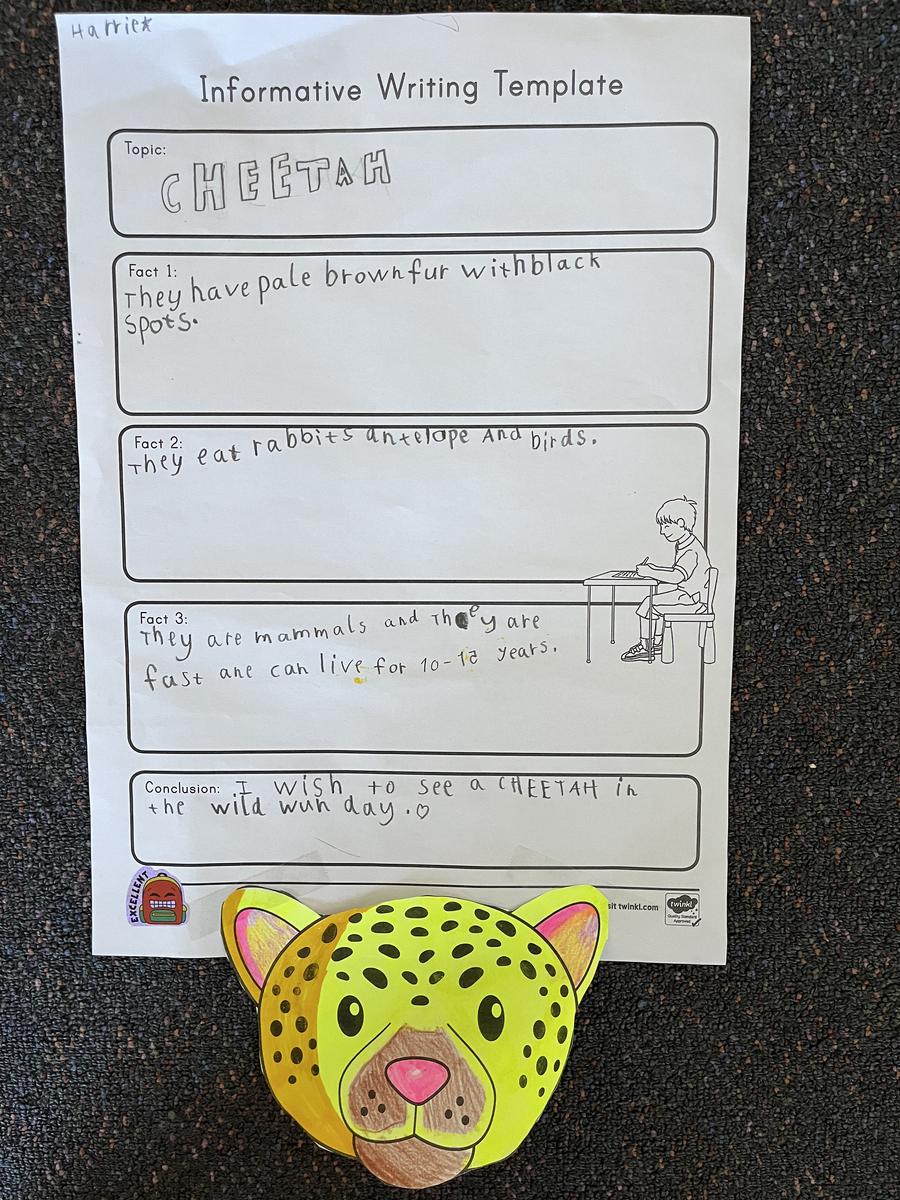 Harriet
Informative Writing Template
Topic:
CHEETAH
Fact 1:
They have pale brown fur with black
spots.
Fact 2:
They eat rabbits antelope And birds.
Fact 3:
They are mammals and They are
fast ane can live for 10-12 years.
Conclusion: I wish to see a CHEETAH in
the wild wun day.♡
EXCELLENT
sit twinkl.com
twinkl
Quality Standard
Approved